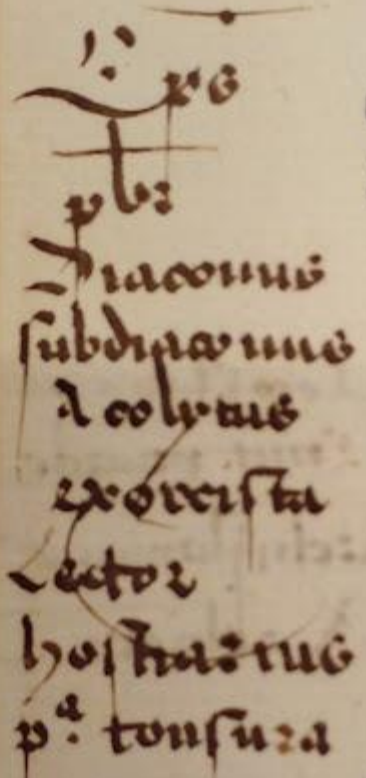 Eps
pbr
Diaconus
subdiaconus
Acolytus
exorcista
Lector
hostiarius
pª. tonsura